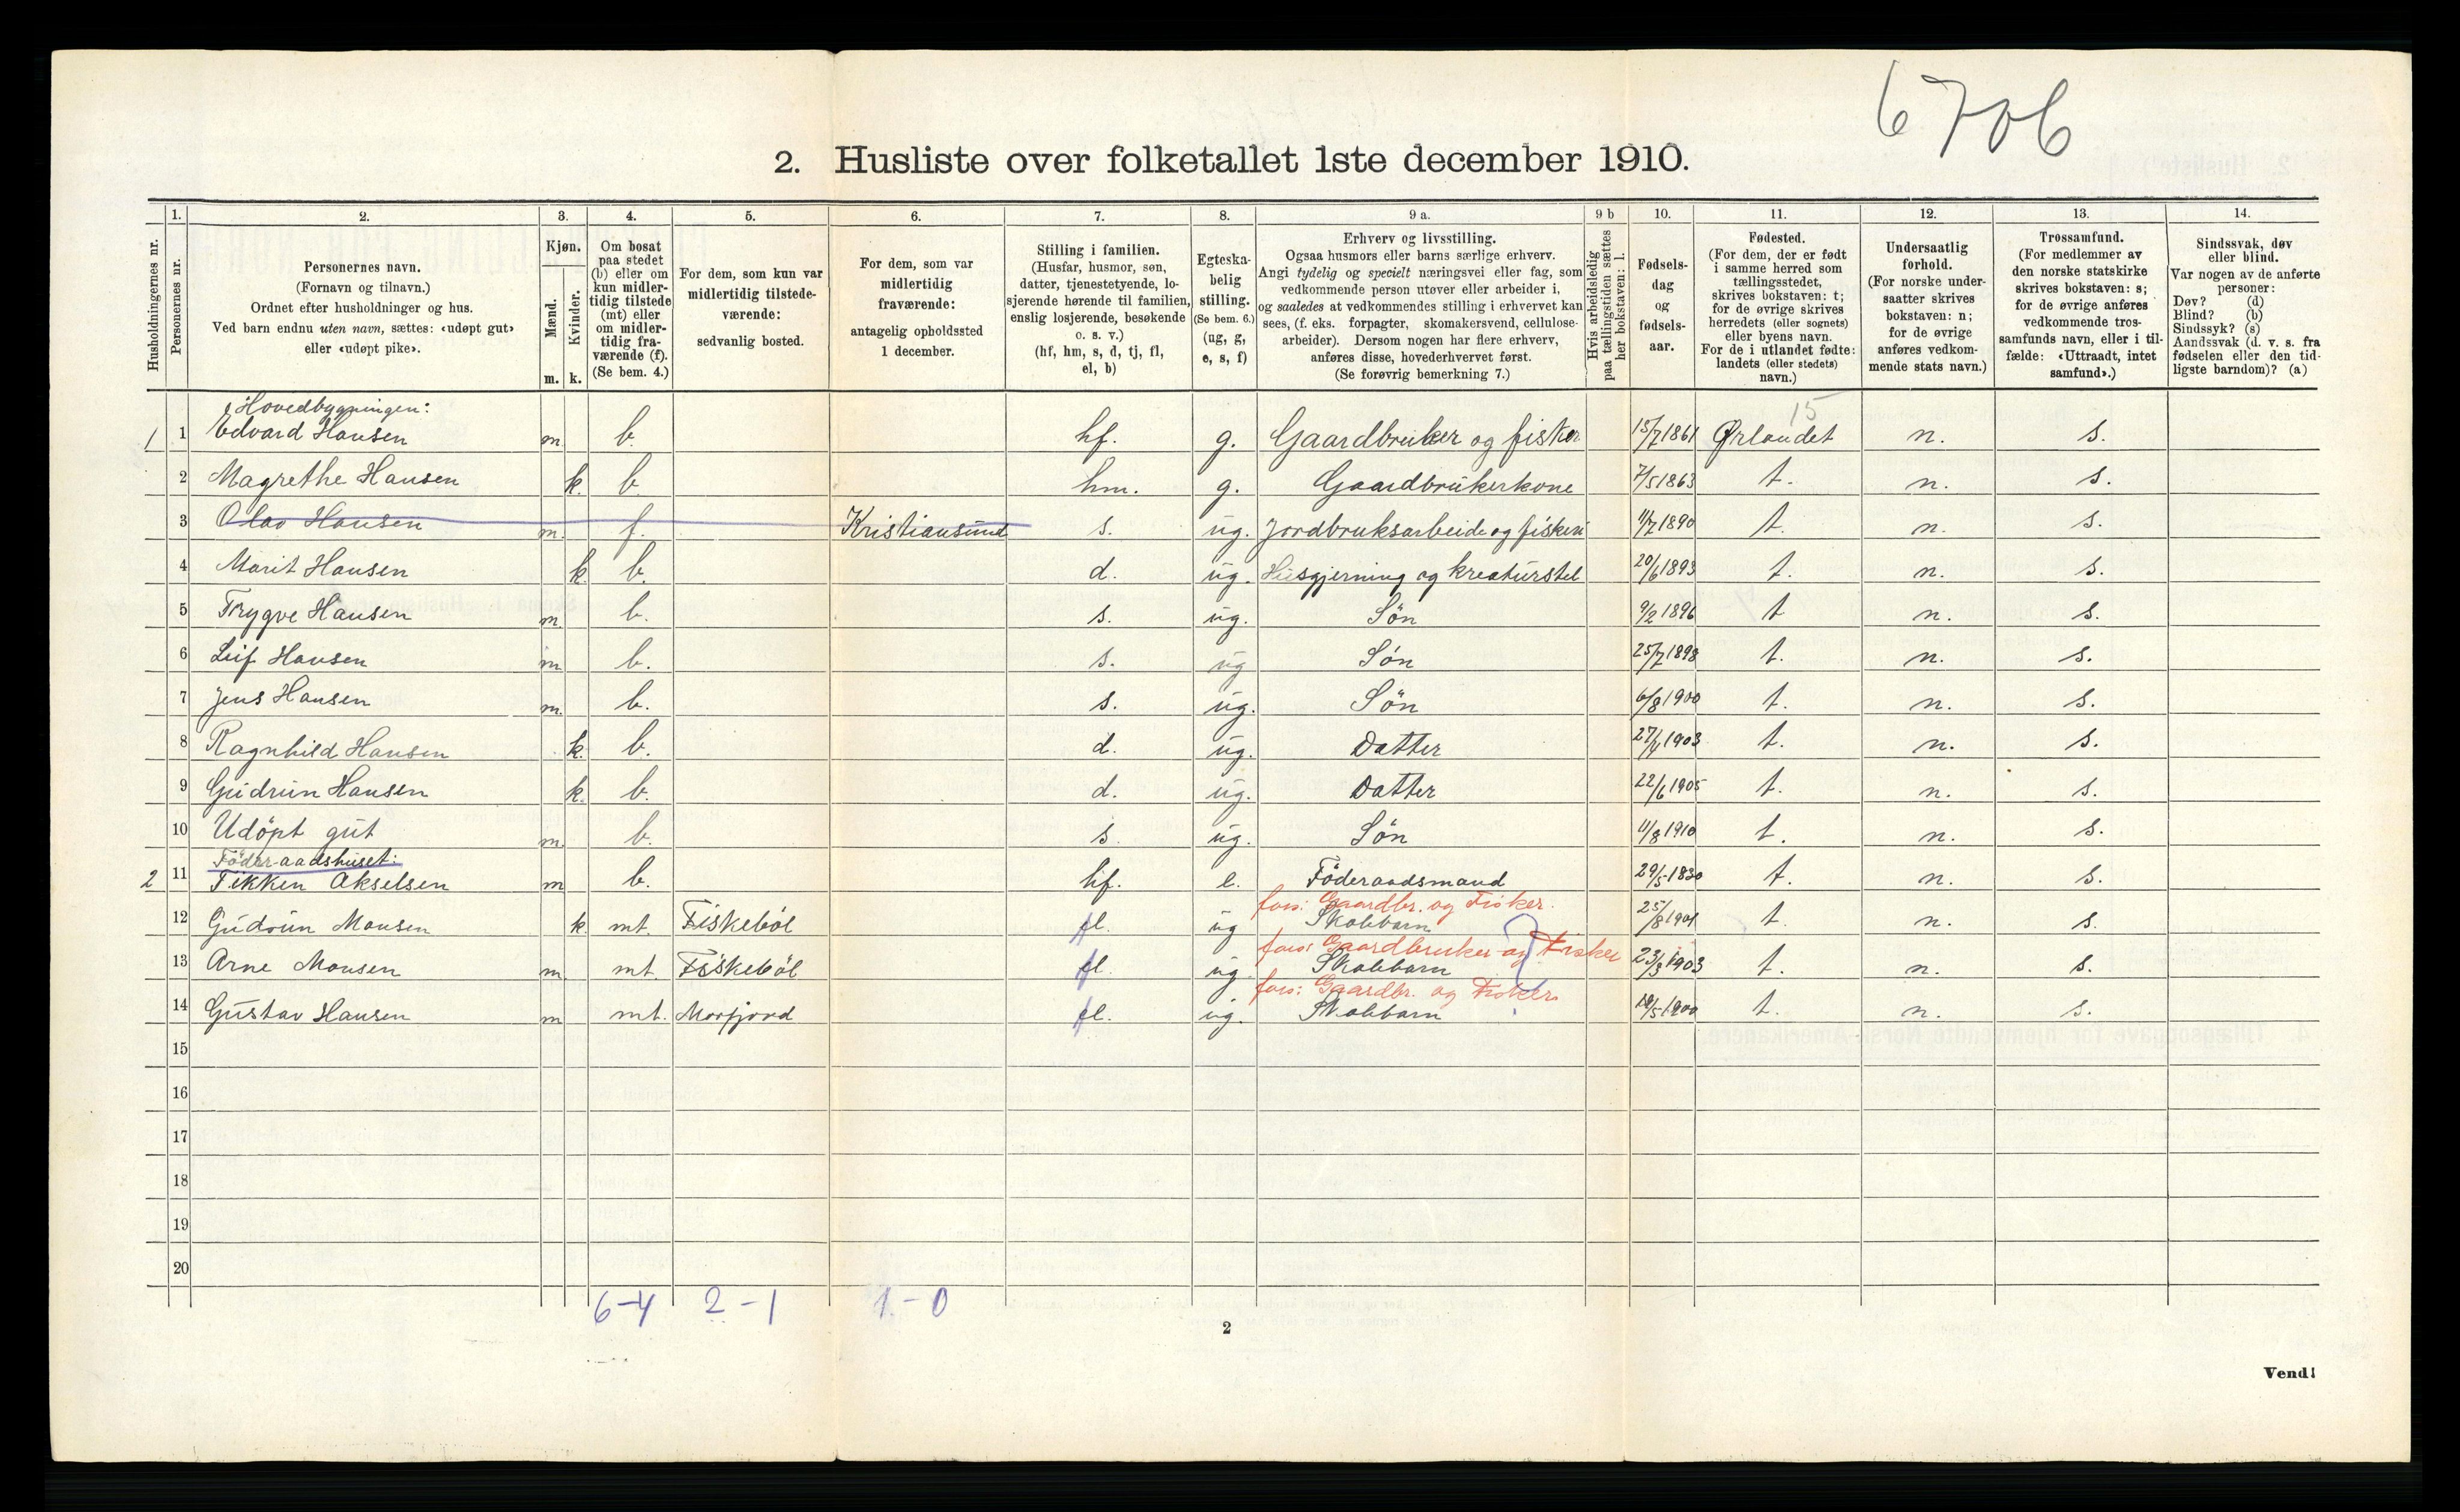 6706
2. Husliste over folketallet 1ste december 1910.
1. 2. 3. 4. 5. 6. 7. 8. 9 a. 9 b 10. 11. 12. 13. 14.
Husholdningernes nr.
Personernes nr.
Personernes navn.
(Fornavn og tilnavn.)
Ordnet efter husholdninger og hus.
Ved barn endnu uten navn, sættes: «udøpt gut»
eller «udøpt pike».
Kjøn.
Mænd.
Kvinder.
m. k.
Om bosat
paa stedet
(b) eller om
kun midler-
tidig tilstede
(mt) eller
om midler-
tidig fra-
værende (f).
(Se bem. 4.)
For dem, som kun var
midlertidig tilstede-
værende:
sedvanlig bosted.
For dem, som var
midlertidig
fraværende:
antagelig opholdssted
1 december.
Stilling i familien.
(Husfar, husmor, søn,
datter, tjenestetyende, lo-
sjerende hørende til familien,
enslig losjerende, besøkende
o. s. v.)
(hf, hm, s, d, tj, fl,
el, b)
Egteska-
belig
stilling.
(Se bem. 6.)
(ug, g,
e, s, f)
Erhverv og livsstilling.
Ogsaa husmors eller barns særlige erhverv.
Angi tydelig og specielt næringsvei eller fag, som
vedkommende person utøver eller arbeider i,
og saaledes at vedkommendes stilling i erhvervet kan
sees, (f. eks. forpagter, skomakersvend, cellulose-
arbeider). Dersom nogen har flere erhverv,
anføres disse, hovederhvervet først.
(Se forøvrig bemerkning 7.)
Hvis arbeidsledig
paa tællingstiden sættes
her bokstaven: l.
Fødsels-
dag
og
fødsels-
aar.
Fødested.
(For dem, der er født
i samme herred som
tællingsstedet,
skrives bokstaven: t;
for de øvrige skrives
herredets (eller sognets)
eller byens navn.
For de i utlandet fødte:
landets (eller stedets)
navn.)
Undersaatlig
forhold.
(For norske under-
saatter skrives
bokstaven: n;
for de øvrige
anføres vedkom-
mende stats navn.)
Trossamfund.
(For medlemmer av
den norske statskirke
skrives bokstaven: s;
for de øvrige anføres
vedkommende tros-
samfunds navn, eller i til-
fælde: «Uttraadt, intet
samfund».)
Sindssvak, døv
eller blind.
Var nogen av de anførte
personer:
Døv? (d)
Blind? (b)
Sindssyk? (s)
Aandssvak (d. v. s. fra
fødselen eller den tid-
ligste barndom)? (a)
Hovedbygningen: 15
1 1 Edvard Hansen m b. hf. g. Gaardbruker og fisker 15/7 1861 Ørlandet n. s.
2 Magrethe Hansen k. b. hm. g. Gaardbrukerkone 7/5 1863 t. n. s.
3 Olav Hansen m. f. Kristiansund s. ug. Jordbruksarbeide og fiskeri 11/7 1890 t. n. s.
4 Marit Hansen k. b. d. ug. Husgjerning og kreaturstel 20/6 1893 t. n. s.
5 Trygve Hansen m. b. s. ug. Sön 9/2 1896 t n. s.
6 Leif Hansen m b. s. ug Sön 25/7 1898 t. n. s.
7 Jens Hansen m. b. s. ug. Sön 6/8 1900 t. n. s.
8 Ragnhild Hansen k. b. d. ug. Datter 27/4 1903 t. n. s.
9 Gudrun Hansen k. b. d. ug. Datter 22/6 1905 t. n. s.
10 Udöpt gut m. b. s. ug. Sön 11/8 1910 t. n. s.
Föderaadshuset:
2 11 Tikken Akselsen m b. hf. e. Föderaadsmand 29/5 1830 t. n. s.
fors: Gaardbr. og Fisker.
12 Gudrun Monsen k mt. Fiskeböl fl. ug Skolebarn 25/8 1901 t. n. s.
fors: Gaardbruker og Fisker
13 Arne Monsen m. mt. Fiskeböl fl. ug. Skolebarn 23/3 1903 t. n. s.
fors: Gaardbr. og Fisker.
14 Gustav Hansen m mt. Morfjord fl. ug. Skolebarn 19/5 1900 t. n. s.
15
16
17
18
19
20
6-4 2-1 1-0
2
Vend!